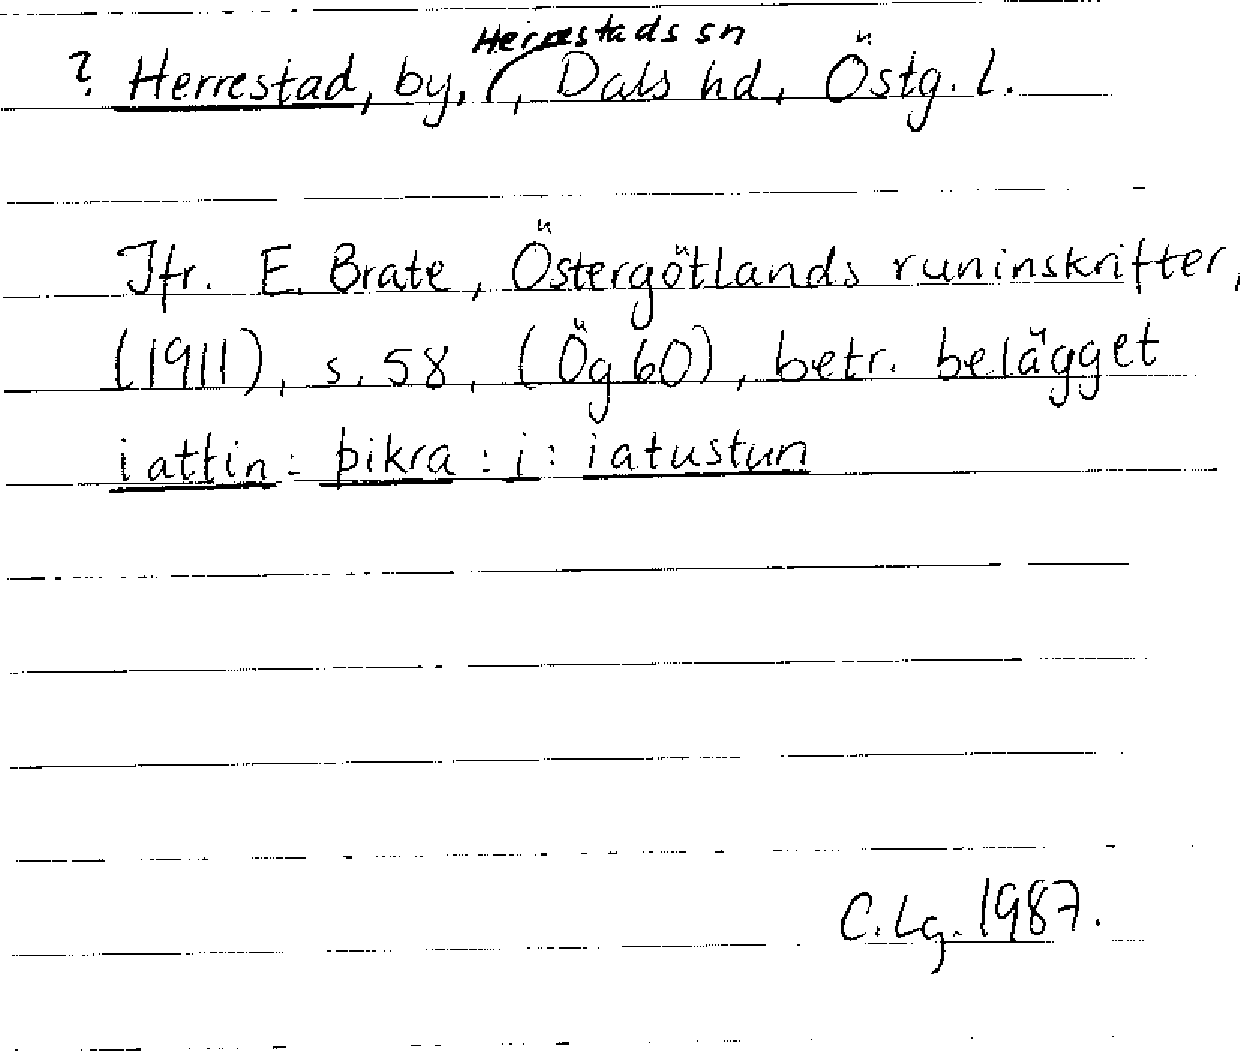 Herrestads sn
? Herrestad, by, (, Dals hd, Östg. l.
Jfr. E. Brate, Östergötlands runinskrifter,
(1911), s. 58, (Ög 60), betr. belägget
iattin : þikra : i : iatustun
C. Lg. 1987.